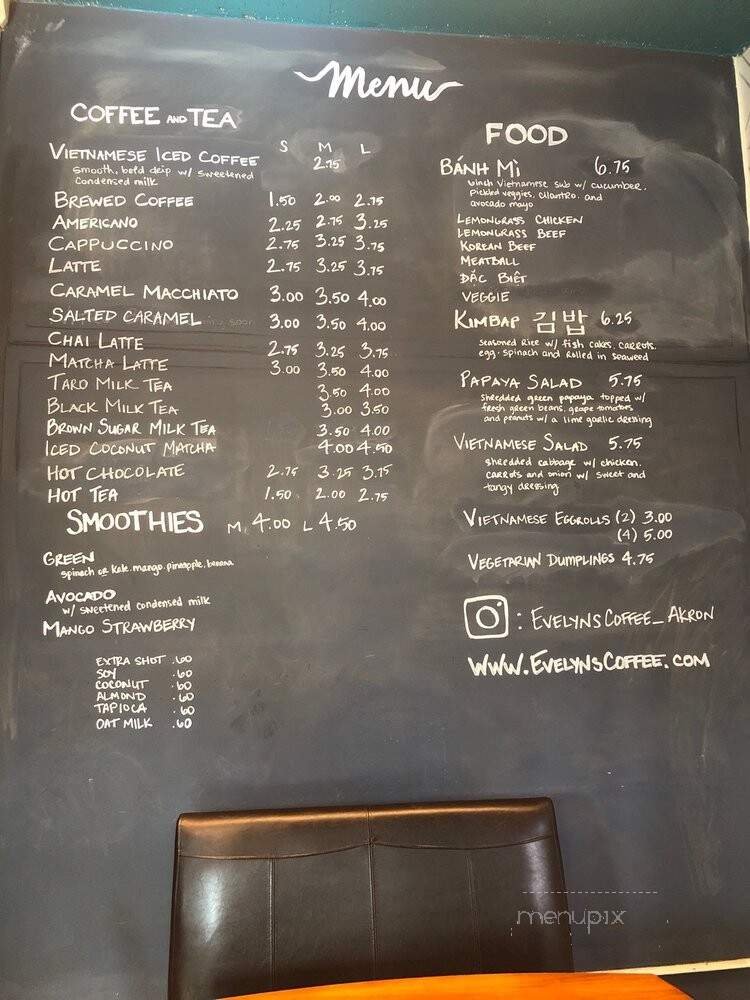 Menu
COFFEE AND TEA
S M L
VIETNAMESE ICED COFFEE 2.75
smooth, bold drip w/ sweetened
condensed milk
BREWED COFFEE 1.50 2.00 2.75
AMERICANO 2.25 2.75 3.25
CAPPUCCINO 2.75 3.25 3.75
LATTE 2.75 3.25 3.75
CARAMEL MACCHIATO 3.00 3.50 4.00
SALTED CARAMEL 3.00 3.50 4.00
CHAI LATTE 2.75 3.25 3.75
MATCHA LATTE 3.00 3.50 4.00
TARO MILK TEA 3.50 4.00
BLACK MILK TEA 3.00 3.50
BROWN SUGAR MILK TEA 3.50 4.00
ICED COCONUT MATCHA 4.00 4.50
HOT CHOCOLATE 2.75 3.25 3.75
HOT TEA 1.50 2.00 2.75
SMOOTHIES M 4.00 L 4.50
GREEN
spinach or kale, mango, pineapple, banana
AVOCADO
w/ sweetened condensed milk
MANGO STRAWBERRY
EXTRA SHOT .60
SOY .60
COCONUT .60
ALMOND .60
TAPIOCA .60
OAT MILK .60
FOOD
BÁNH MÌ 6.75
Vietnamese sub w/ cucumber,
pickled veggies, cilantro, and
avocado mayo
LEMONGRASS CHICKEN
LEMONGRASS BEEF
KOREAN BEEF
MEATBALL
ĐẶC BIỆT
VEGGIE
KIMBAP 김밥 6.25
seasoned Rice w/ fish cakes, carrots,
egg, spinach and Rolled in seaweed
PAPAYA SALAD 5.75
shredded green papaya topped w/
fresh green beans, grape tomatoes
and peanuts w/ a lime garlic dressing
VIETNAMESE SALAD 5.75
shredded cabbage w/ chicken,
carrots and onion w/ sweet and
tangy dressing
VIETNAMESE EGGROLLS (2) 3.00
(4) 5.00
VEGETARIAN DUMPLINGS 4.75
: EVELYNSCOFFEE_AKRON
WWW.EVELYNSCOFFEE.COM
menupix